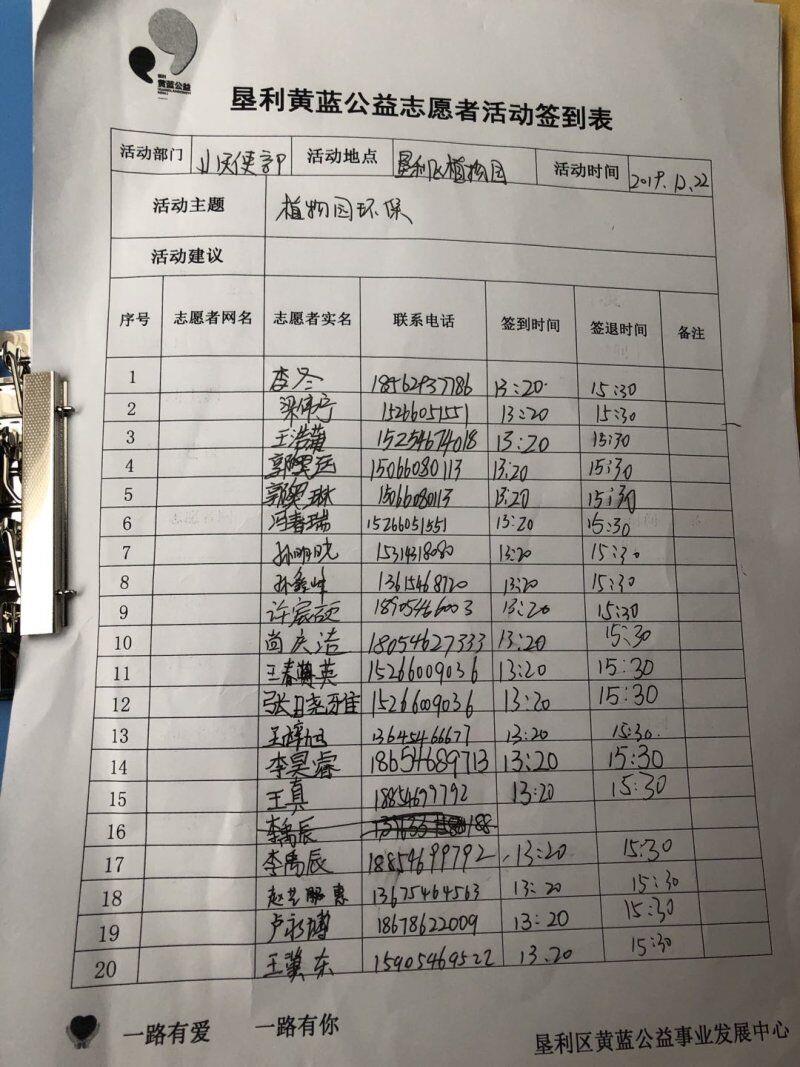 垦利
黄蓝公益
垦利黄蓝公益志愿者活动签到表
活动部门 活动地点 垦利区植物园 活动时间 2019.12.22
活动主题 植物园环保
活动建议
序号 志愿者网名 志愿者实名 联系电话 签到时间 签退时间 备注
1 李冬 18562937786 13:20 15:30
2 15266051551 13:20 15:30
3 王浩 15254674018 13:20 15:30
4 15066080113 13:20 15:30
5 15066080113 13:20 15:30
6 冯春瑞 15266051551 13:20 15:30
7 孙明晓 15314318080 13:20 15:30
8 孙鑫 13615468720 13:20 15:30
9 许宸硕 18905466003 13:20 15:30
10 尚庆洁 18054627333 13:20 15:30
11 王春英 15266009036 13:20 15:30
12 15266009036 13:20 15:30
13 13645466677 13:20 15:30
14 李昊睿 18654689713 13:20 15:30
15 王真 18854699792 13:20 15:30
16 李禹辰
17 李禹辰 18854699792 13:20 15:30
18 13675464563 13:20 15:30
19 卢永博 18678622009 13:20 15:30
20 王冀东 15905469522 13:20 15:30
一路有爱 一路有你
垦利区黄蓝公益事业发展中心